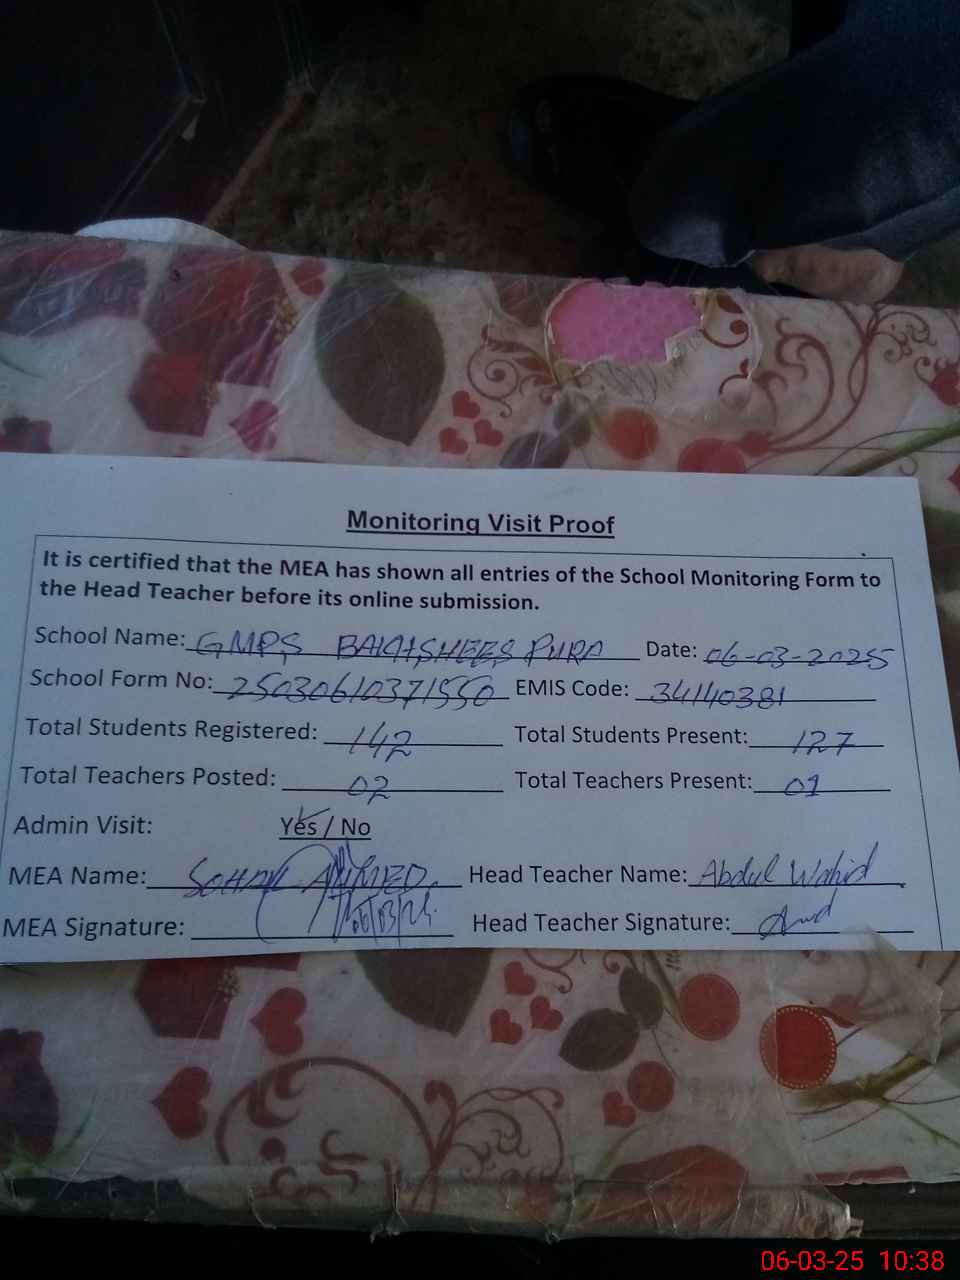 Monitoring Visit Proof
It is certified that the MEA has shown all entries of the School Monitoring Form to
the Head Teacher before its online submission.
School Name: GMPS BAKHSHEES PURA Date: 06-03-2025
School Form No: 25030610371550 EMIS Code: 34140381
Total Students Registered: 142 Total Students Present: 127
Total Teachers Posted: 02 Total Teachers Present: 01
Admin Visit: Yes / No
MEA Name: SOHAIL AHMED Head Teacher Name: Abdul Wahid
MEA Signature: Head Teacher Signature:
06-03-25 10:38